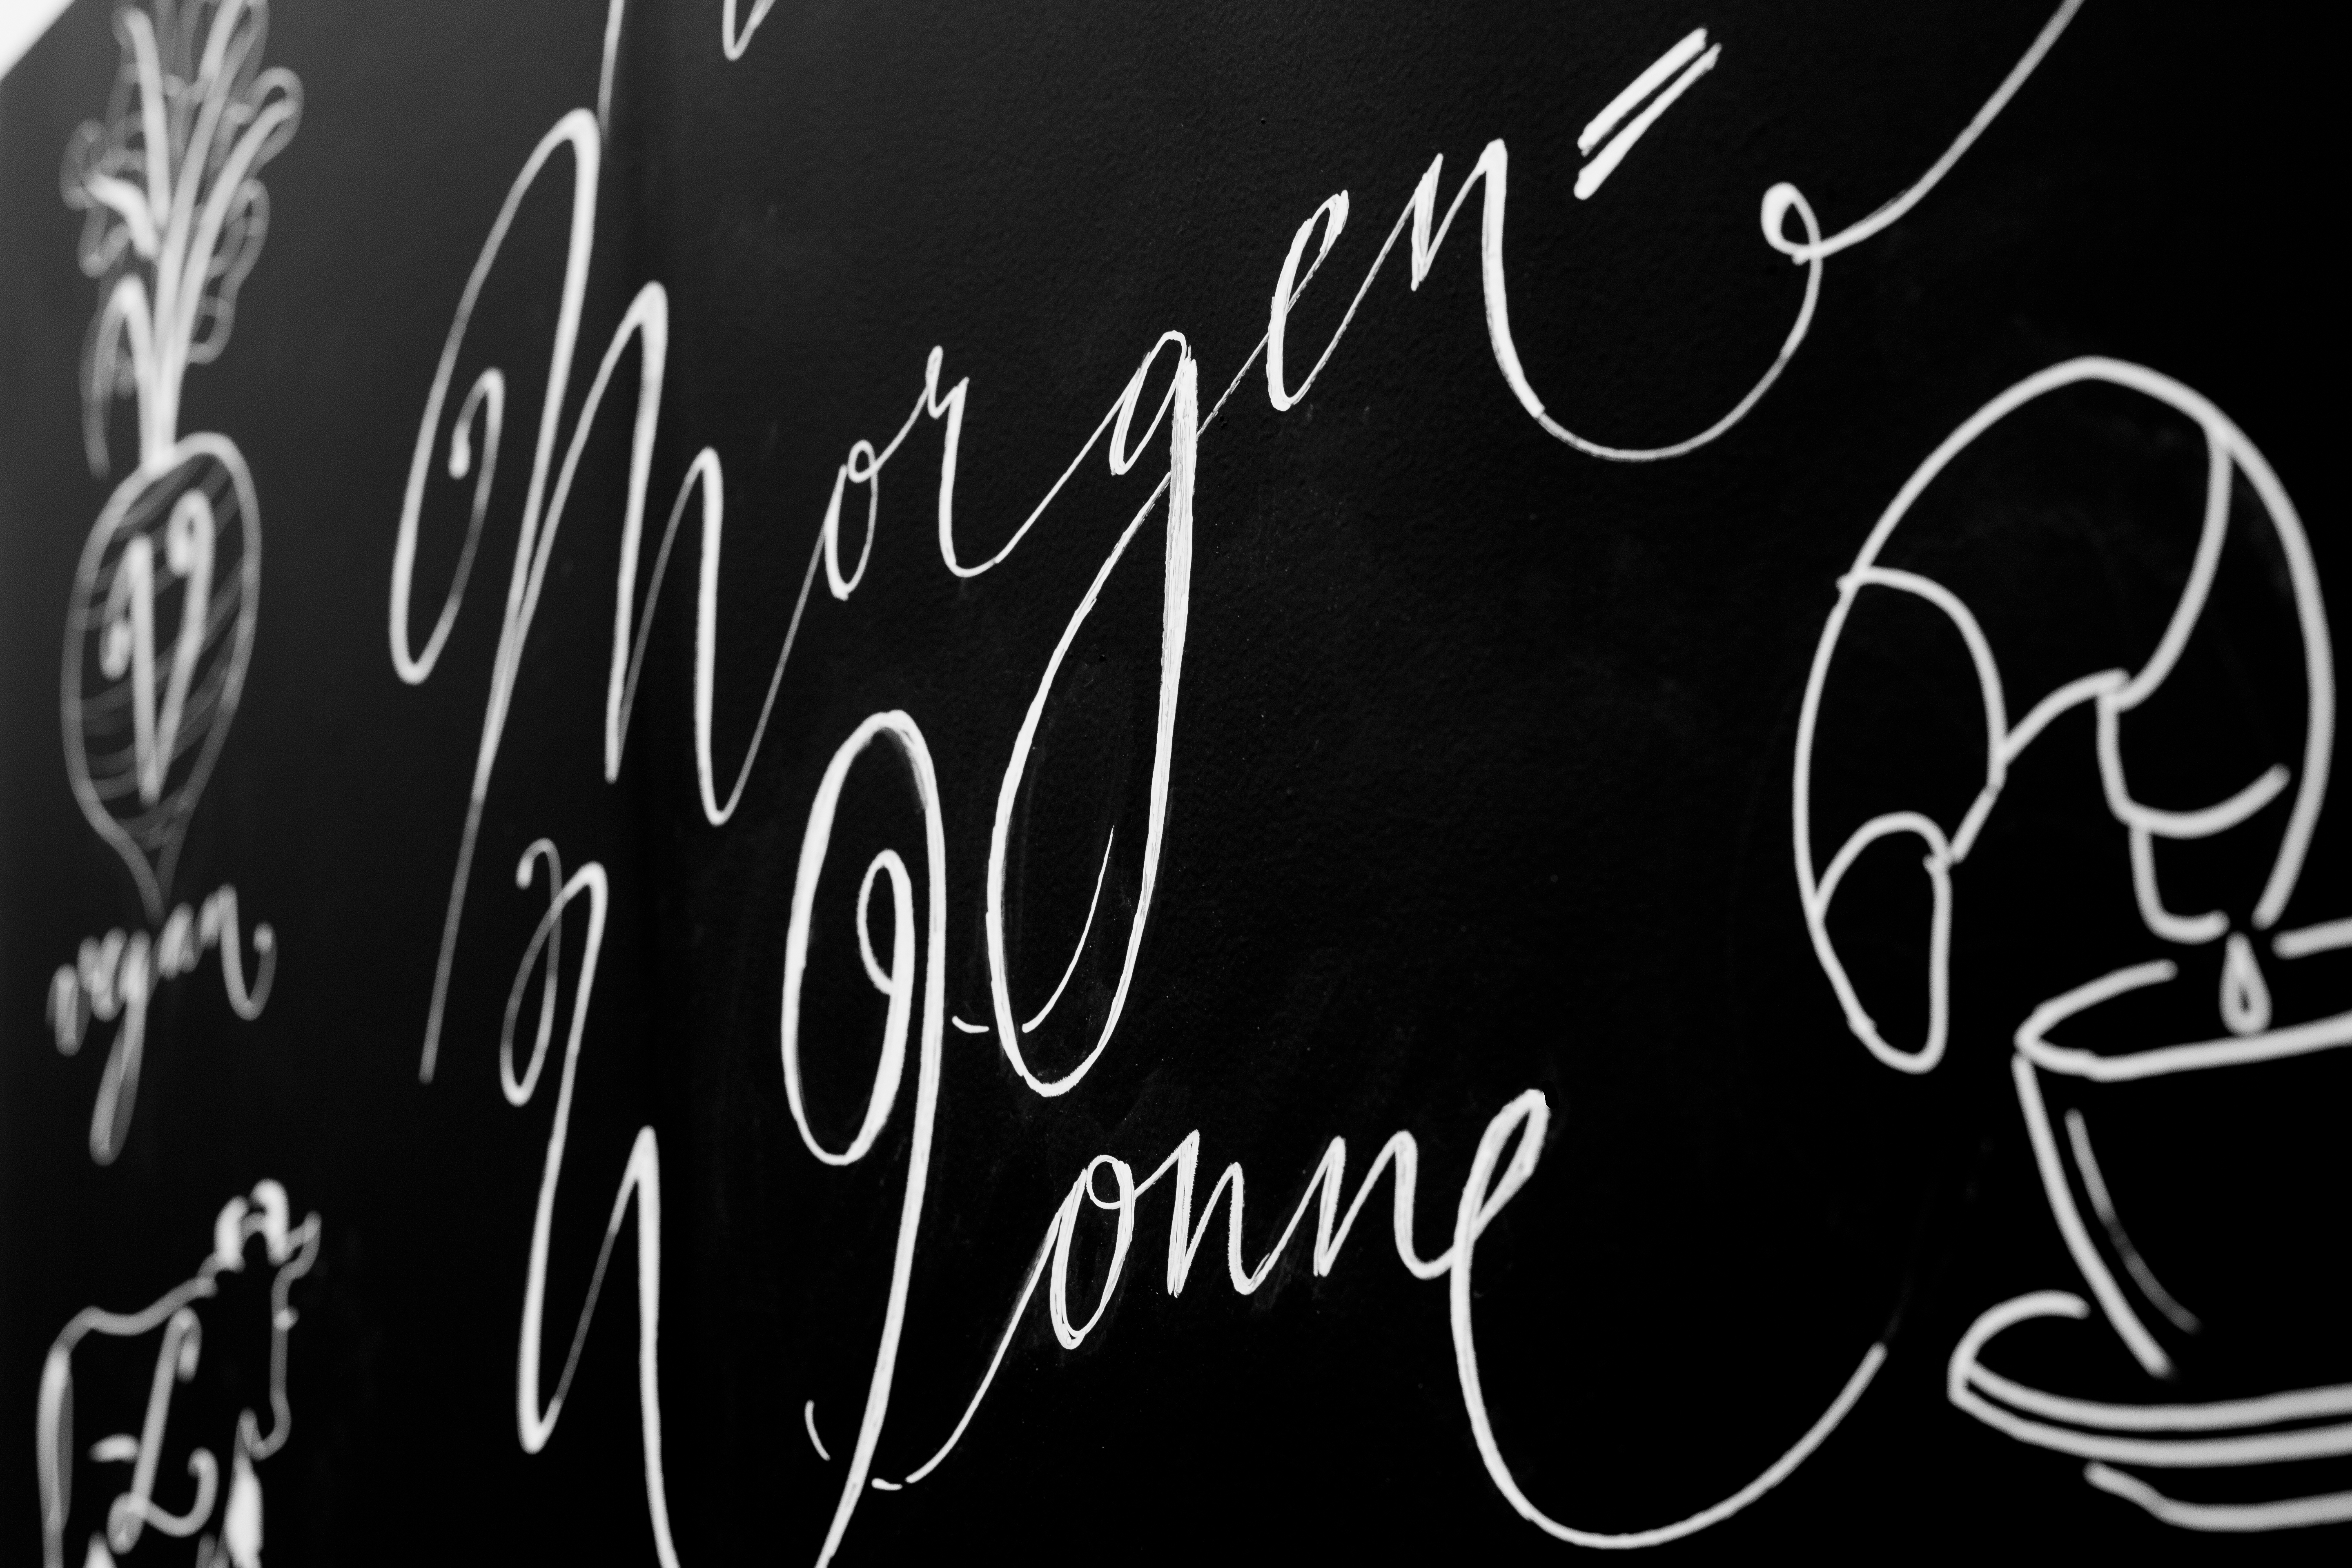 Morgen=
Wonne
V
vegan
L